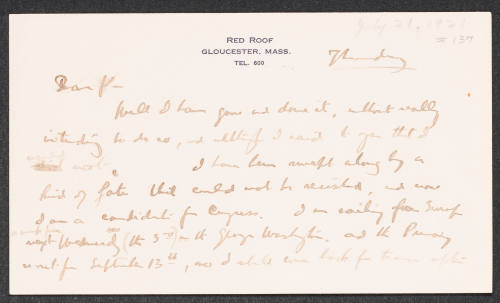 RED ROOF
GLOUCESTER, MASS.
TEL. 600
July 21, 1921
= 137
Thursday
Dear P—
Well I have gone and done it, without really
intending to do so, and although I said to you that I
would not. I have been swept along by a
kind of fate that could not be resisted, and now
I am a candidate for Congress. I am sailing from Europe
next Wednesday (the 3rd) on the George Washington. and the Primary
is not for September 13th, and I shall come back for